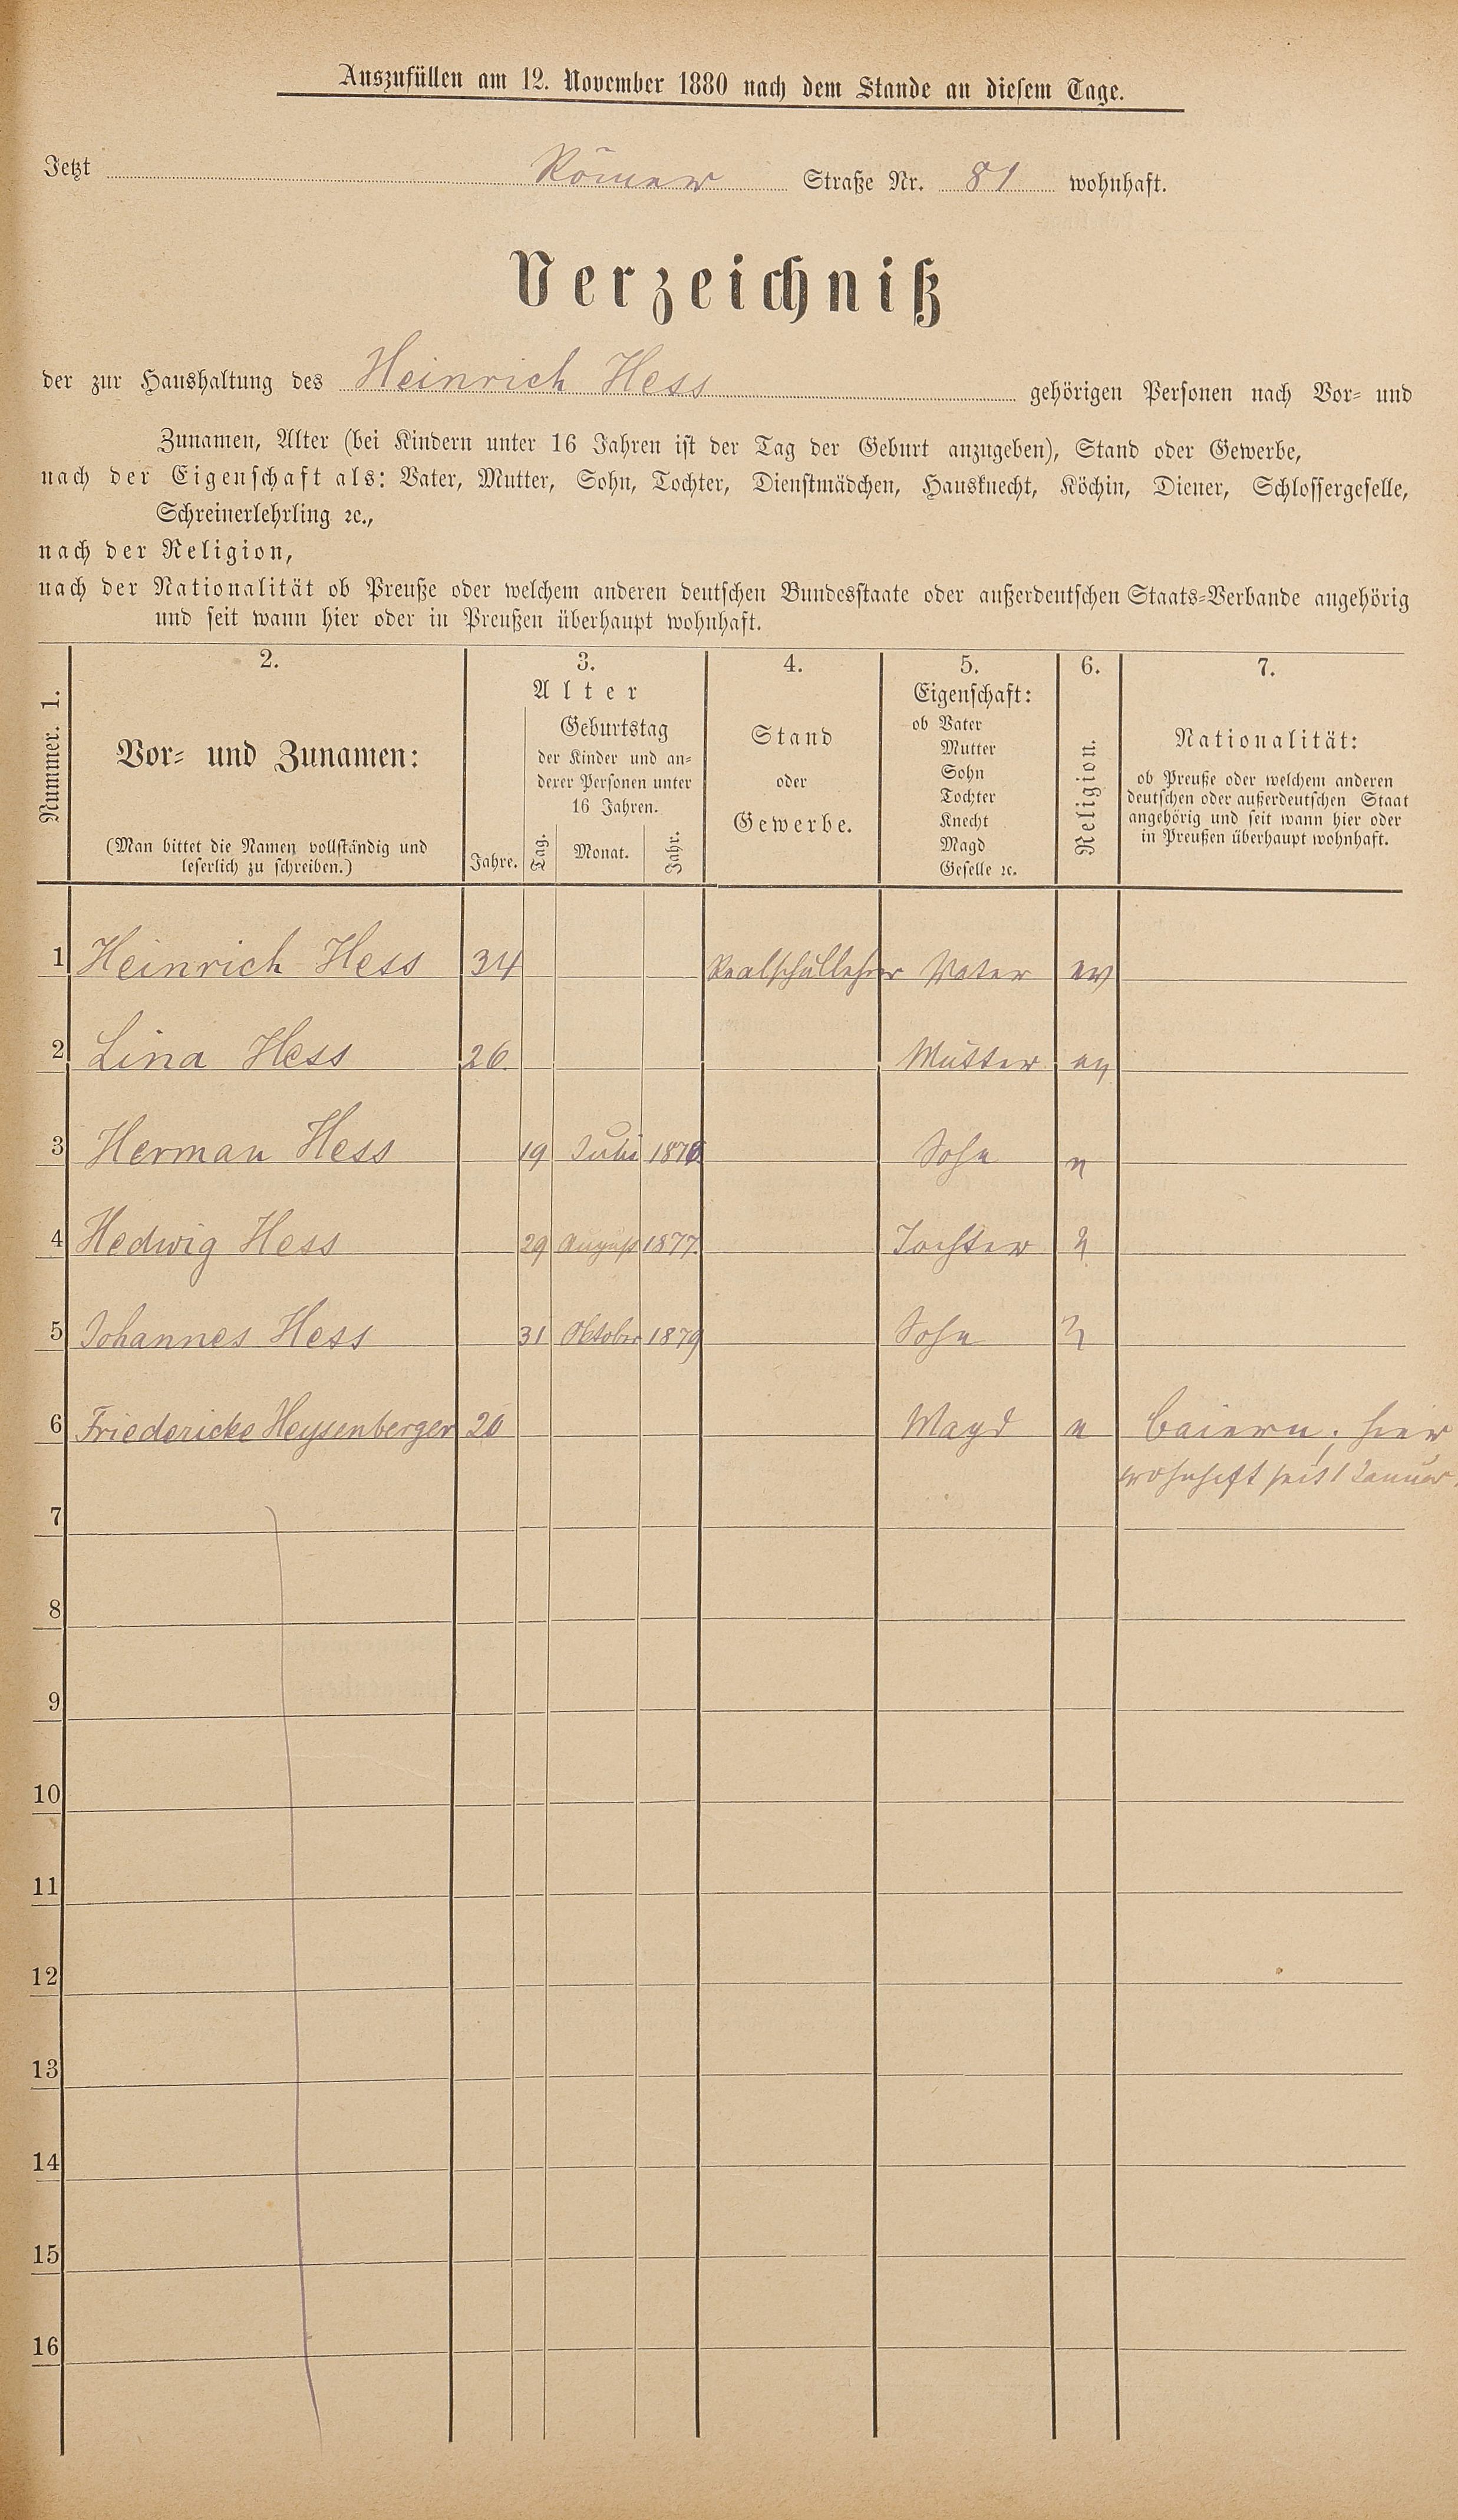 Auszufüllen am 12. November 1880 nach dem Stande an diesem Tage.
Jetzt Römer Straße Nr. 81 wohnhaft.
Verzeichniß
der zur Haushaltung des Heinrich Hess gehörigen Personen nach Vor- und
Zunamen, Alter (bei Kindern unter 16 Jahren ist der Tag der Geburt anzugeben), Stand oder Gewerbe,
nach der Eigenschaft als: Vater, Mutter, Sohn, Tochter, Dienstmädchen, Hausknecht, Köchin, Diener, Schlossergeselle,
Schreinerlehrling ꝛc.,
nach der Religion,
nach der Nationalität ob Preuße oder welchem anderen deutschen Bundesstaate oder außerdeutschen Staats-Verbande angehörig
und seit wann hier oder in Preußen überhaupt wohnhaft.
Nummer. 1.
2.
Vor- und Zunamen:
(Man bittet die Namen vollständig und
leserlich zu schreiben.)
3.
Alter
Jahre.
Geburtstag
der Kinder und an-
derer Personen unter
16 Jahren.
Tag. Monat. Jahr.
4.
Stand
oder
Gewerbe.
5.
Eigenschaft:
ob Vater
Mutter
Sohn
Tochter
Knecht
Magd
Geselle ꝛc.
6.
Religion.
7.
Nationalität:
ob Preuße oder welchem anderen
deutschen oder außerdeutschen Staat
angehörig und seit wann hier oder
in Preußen überhaupt wohnhaft.
1 Heinrich Hess 34 Realschullehrer Vater ev
2 Lina Hess 26. Mutter
3 Herman Hess 19 Juli 1876 Sohn
4 Hedwig Hess 29 August 1877. Tochter
5 Johannes Hess 31 Oktober 1879 Sohn
6 Friedericke Heysenberger 20 Magd Baiern; hier
wohnhaft seit 1 Januar.
7
8
9
10
11
12
13
14
15
16